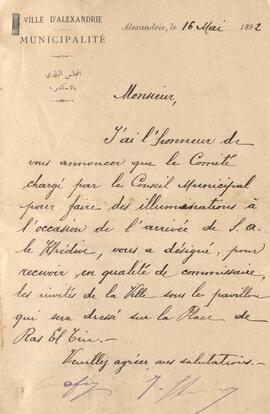 VILLE D'ALEXANDRIE
MUNICIPALITÉ
المجلس البلدي
بالاسكندرية
Alexandrie, le 16 Mai 1892
Monsieur,
J'ai l'honneur de
vous annoncer que le Comité
chargé par le Conseil Municipal
pour faire des illuminations à
l'occasion de l'arrivée de S.A.
le Khédive, vous a désigné, pour
recevoir, en qualité de commissaire,
les invités de la Ville sous le pavillon
qui sera dressé sur la Place de
Ras El Tin.-
Veuillez agréer, mes salutations.-